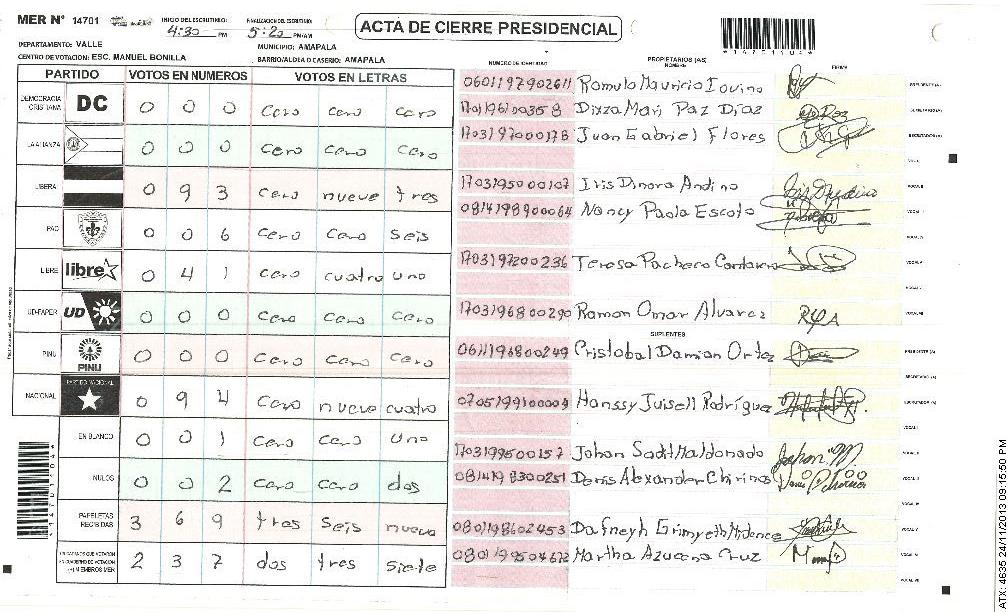 MER N° 14701
INICIO DEL ESCRUTINIO: 4:30 PM
FINALIZACION DEL ESCRUTINIO: 5:20 PM/AM
ACTA DE CIERRE PRESIDENCIAL
*14701104*
DEPARTAMENTO: VALLE
MUNICIPIO: AMAPALA
CENTRO DE VOTACION: ESC. MANUEL BONILLA
BARRIO/ALDEA O CASERIO: AMAPALA
PARTIDO VOTOS EN NUMEROS VOTOS EN LETRAS
DEMOCRACIA CRISTIANA DC 0 0 0 cero cero cero
LA ALIANZA 0 0 0 cero cero cero
LIBERAL 0 9 3 cero nueve tres
PAC 0 0 6 cero cero seis
LIBRE libre 0 4 1 cero cuatro uno
UD-FAPER UD 0 0 0 cero cero cero
PINU PINU 0 0 0 cero cero cero
NACIONAL PARTIDO NACIONAL 0 9 4 cero nueve cuatro
EN BLANCO 0 0 1 cero cero uno
NULOS 0 0 2 cero cero dos
PAPELETAS RECIBIDAS 3 6 9 tres seis nueve
CIUDADANOS QUE VOTARON EN CUADERNO DE VOTACION (+) MIEMBROS MER 2 3 7 dos tres siete
NUMERO DE IDENTIDAD PROPIETARIOS (AS) NOMBRE FIRMA
0601197902611 Romulo Mauricio Iovino PRESIDENTE (A)
Dixza Mari Paz Diaz SECRETARIO (A)
1703197000178 Juan Gabriel Flores ESCRUTADOR (A)
VOCAL I
1703195000107 Iris Dinora Andino VOCAL II
0814198900064 Nancy Paola Escoto VOCAL III
VOCAL IV
1703197200236 Teresa Pacheco VOCAL V
VOCAL VI
1703196800290 Ramon Omar Alvarez VOCAL VII
SUPLENTES
0611196800249 Cristobal Damian Ortez PRESIDENTE (A)
SECRETARIO (A)
Hanssy Juisell Rodrigue ESCRUTADOR (A)
VOCAL I
1703199500157 Johan Sadil Maldonado VOCAL II
Denis Alexander Chirinos VOCAL III
VOCAL IV
0801198602453 Dafneyh Grimyeth VOCAL V
Martha Azucena Cruz VOCAL VI
VOCAL VII
*14701104*
ATX: 4635 24/11/2013 09:15:50 PM